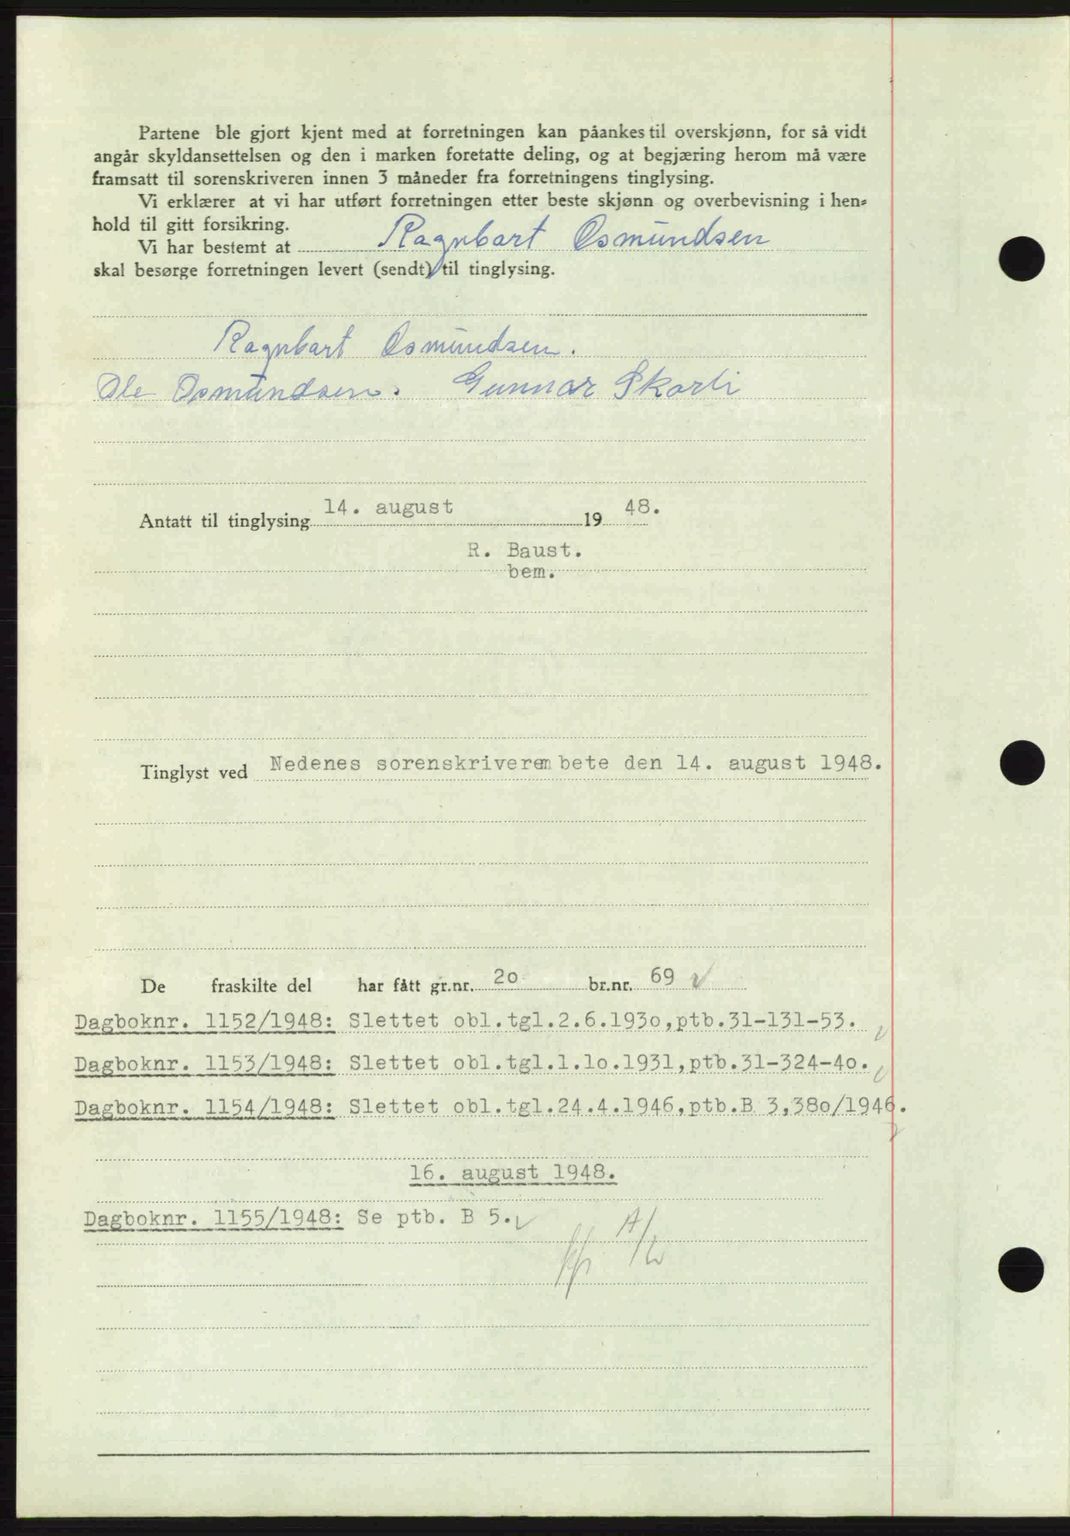 Partene ble gjort kjent med at forretningen kan påankes til overskjønn, for så vidt
angår skyldansettelsen og den i marken foretatte deling, og at begjæring herom må være
framsatt til sorenskriveren innen 3 måneder fra forretningens tinglysing.
Vi erklærer at vi har utført forretningen etter beste skjønn og overbevisning i hen-
hold til gitt forsikring.
Vi har bestemt at Ragnbart Osmundsen
skal besørge forretningen levert (sendt) til tinglysing.
Ragnbart Osmundsen.
Ole Osmundsen. Gunnar Skarli
Antatt til tinglysing 14. august 19 48.
R. Baust.
bem.
Tinglyst ved Nedenes sorenskriverembete den 14. august 1948.
De fraskilte del har fått gr.nr. 20 br.nr. 69
Dagboknr. 1152/1948: Slettet obl.tgl.2.6.1930,ptb.31-131-53.
Dagboknr. 1153/1948: Slettet obl.tgl.1.10.1931,ptb.31-324-40.
Dagboknr. 1154/1948: Slettet obl.tgl.24.4.1946,ptb.B 3,380/1946.
16. august 1948.
Dagboknr. 1155/1948: Se ptb. B 5.